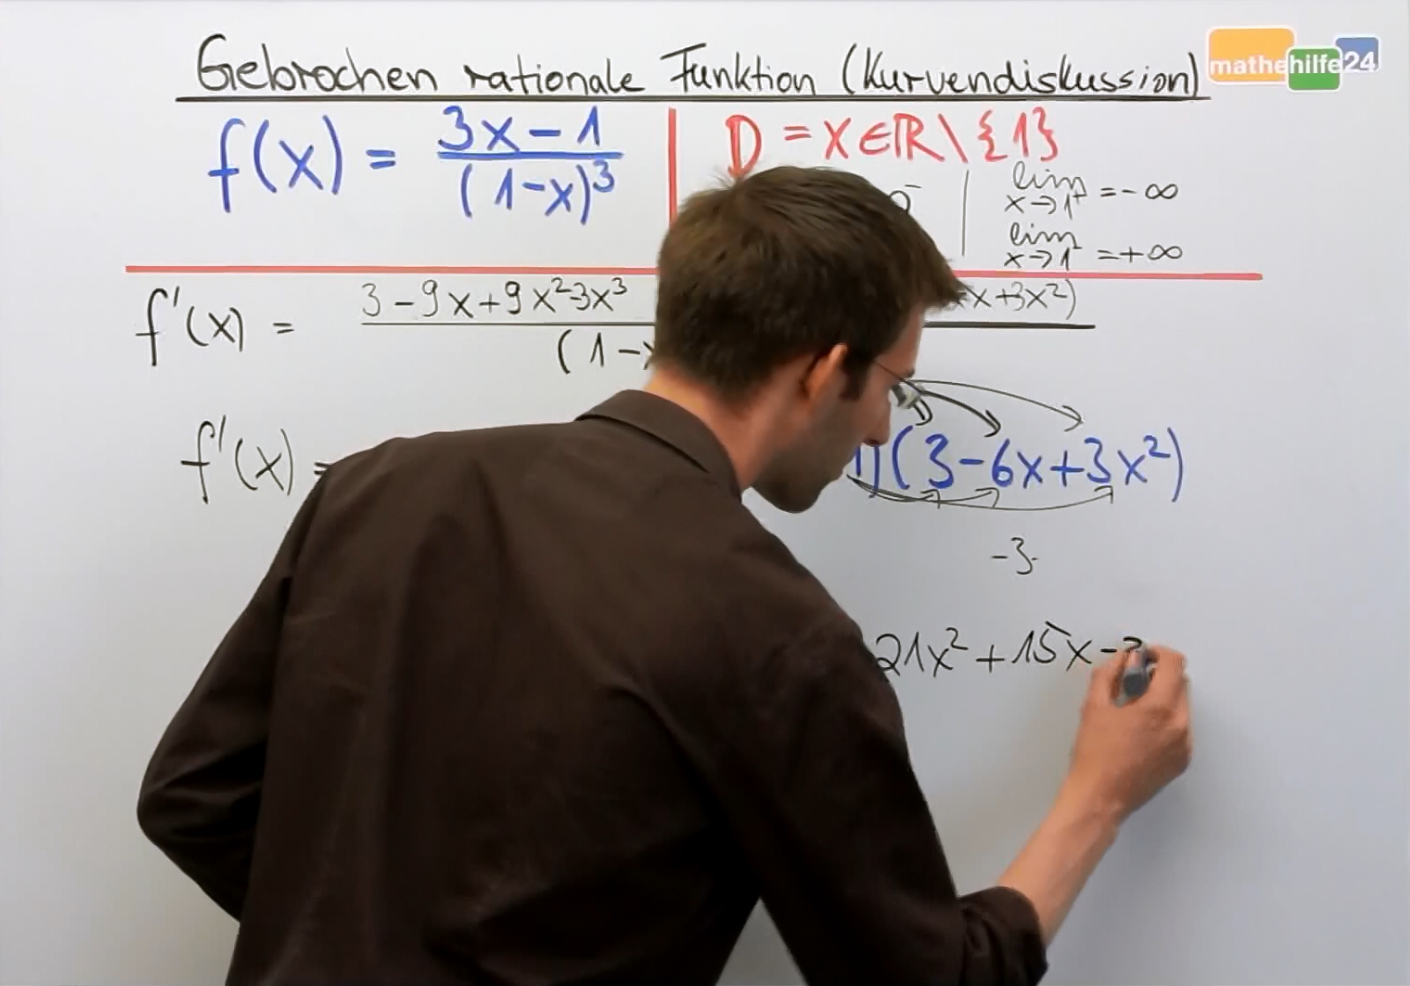 Gebrochen rationale Funktion (Kurvendiskussion)
mathehilfe24
f(x) = 3x-1
(1-x)³
D = X∈ℝ\{1}
lim
x→1⁺ = -∞
lim
x→1⁻ = +∞
f'(x) = 3-9x+9x²-3x³ x+3x²)
(1-x
f'(x) = 1)(3-6x+3x²)
-3·
21x²+15x-3